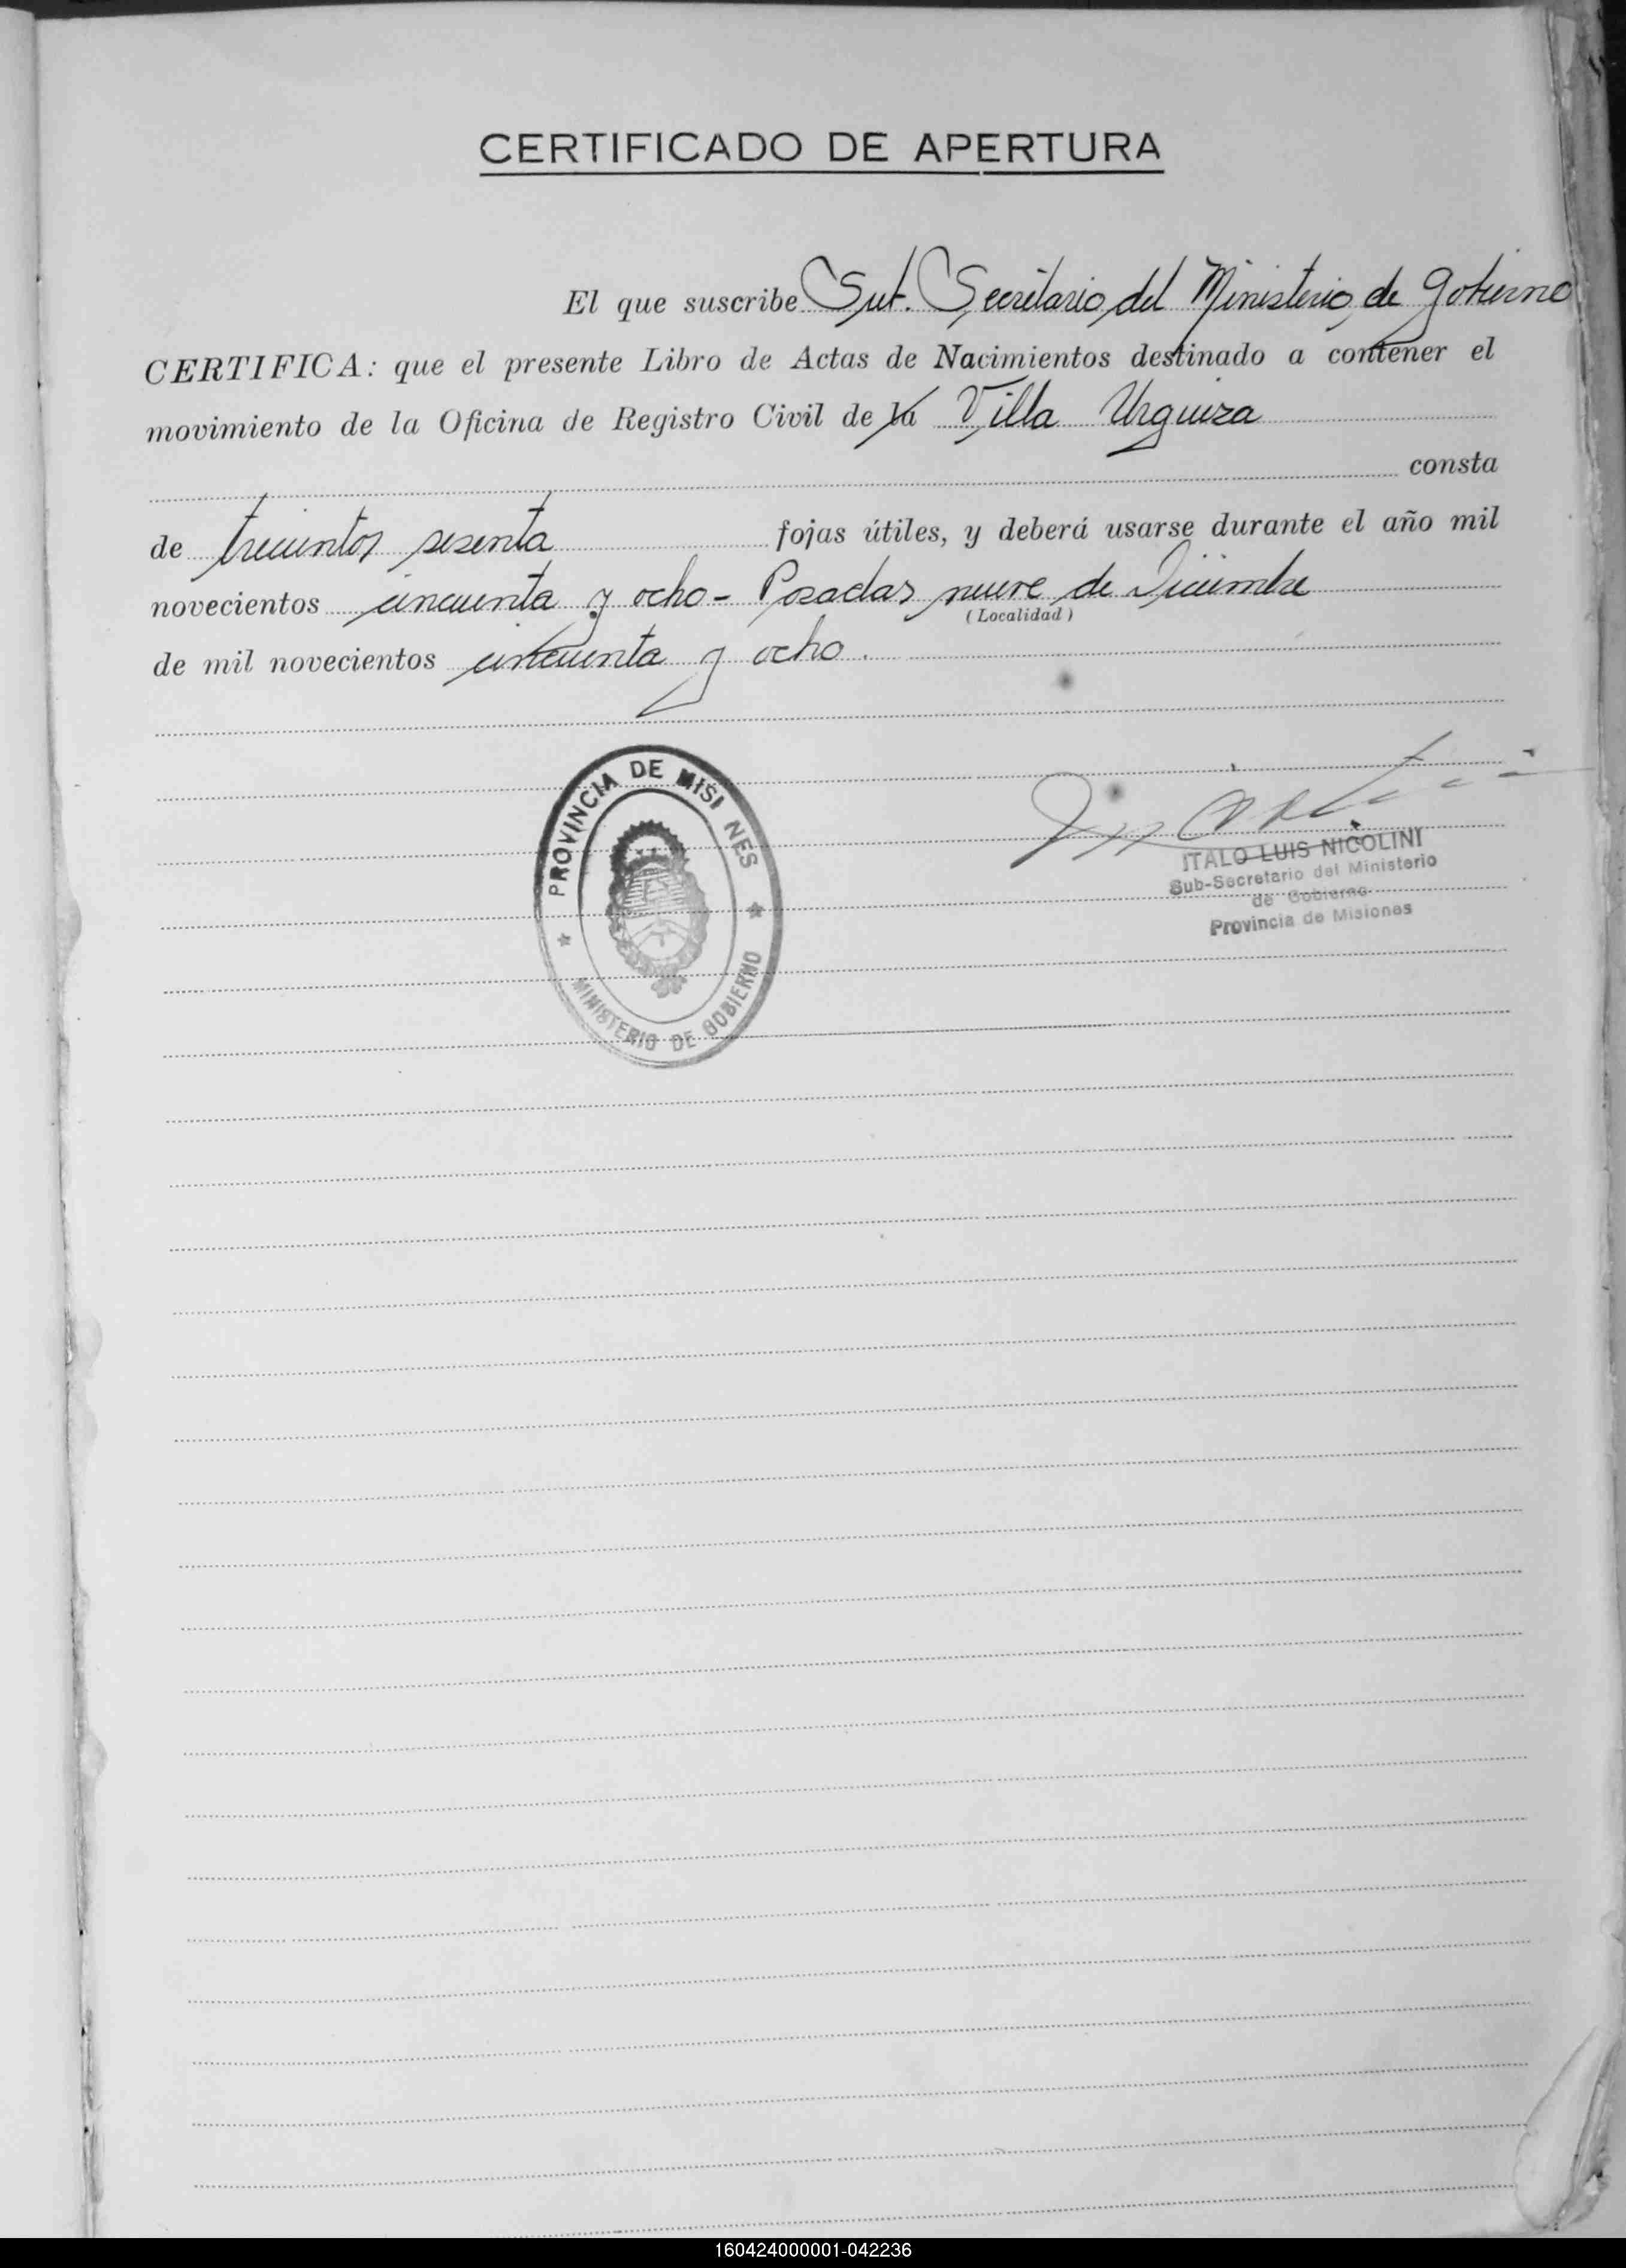 CERTIFICADO DE APERTURA
El que suscribe Sub. Secretario del Ministerio de Gobierno
CERTIFICA: que el presente Libro de Actas de Nacimientos destinado a contener el
movimiento de la Oficina de Registro Civil de la Villa Urquiza
consta
de trecientos sesenta fojas útiles, y deberá usarse durante el año mil
novecientos cincuenta y ocho - Posadas nueve de Diciembre
(Localidad)
de mil novecientos cincuenta y ocho.
PROVINCIA DE MISI NES
MINISTERIO DE GOBIERNO
ITALO LUIS NICOLINI
Sub-Secretario del Ministerio
de Gobierno
Provincia de Misiones
160424000001-042236